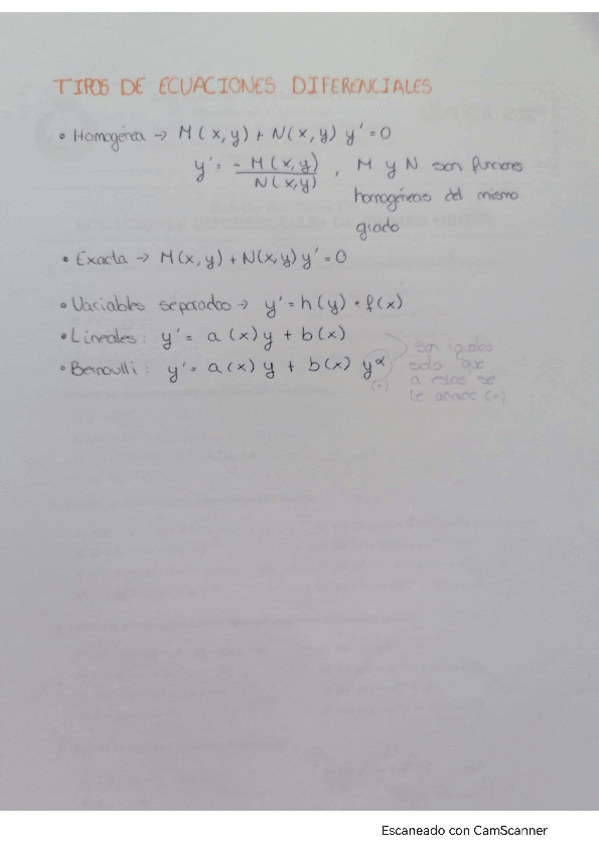 TIPOS DE ECUACIONES DIFERENCIALES
• Homogénea → M(x,y) + N(x,y) y' = 0
y' = -M(x,y)/N(x,y) , M y N son funciones
homogéneas del mismo
grado
• Exacta → M(x,y) + N(x,y) y' = 0
• Variables separadas → y' = h(y) · f(x)
• Lineales: y' = a(x)y + b(x)
• Bernoulli: y' = a(x)y + b(x) y^α
(*)
son iguales
solo que
a estas se
le añade (*)
Escaneado con CamScanner